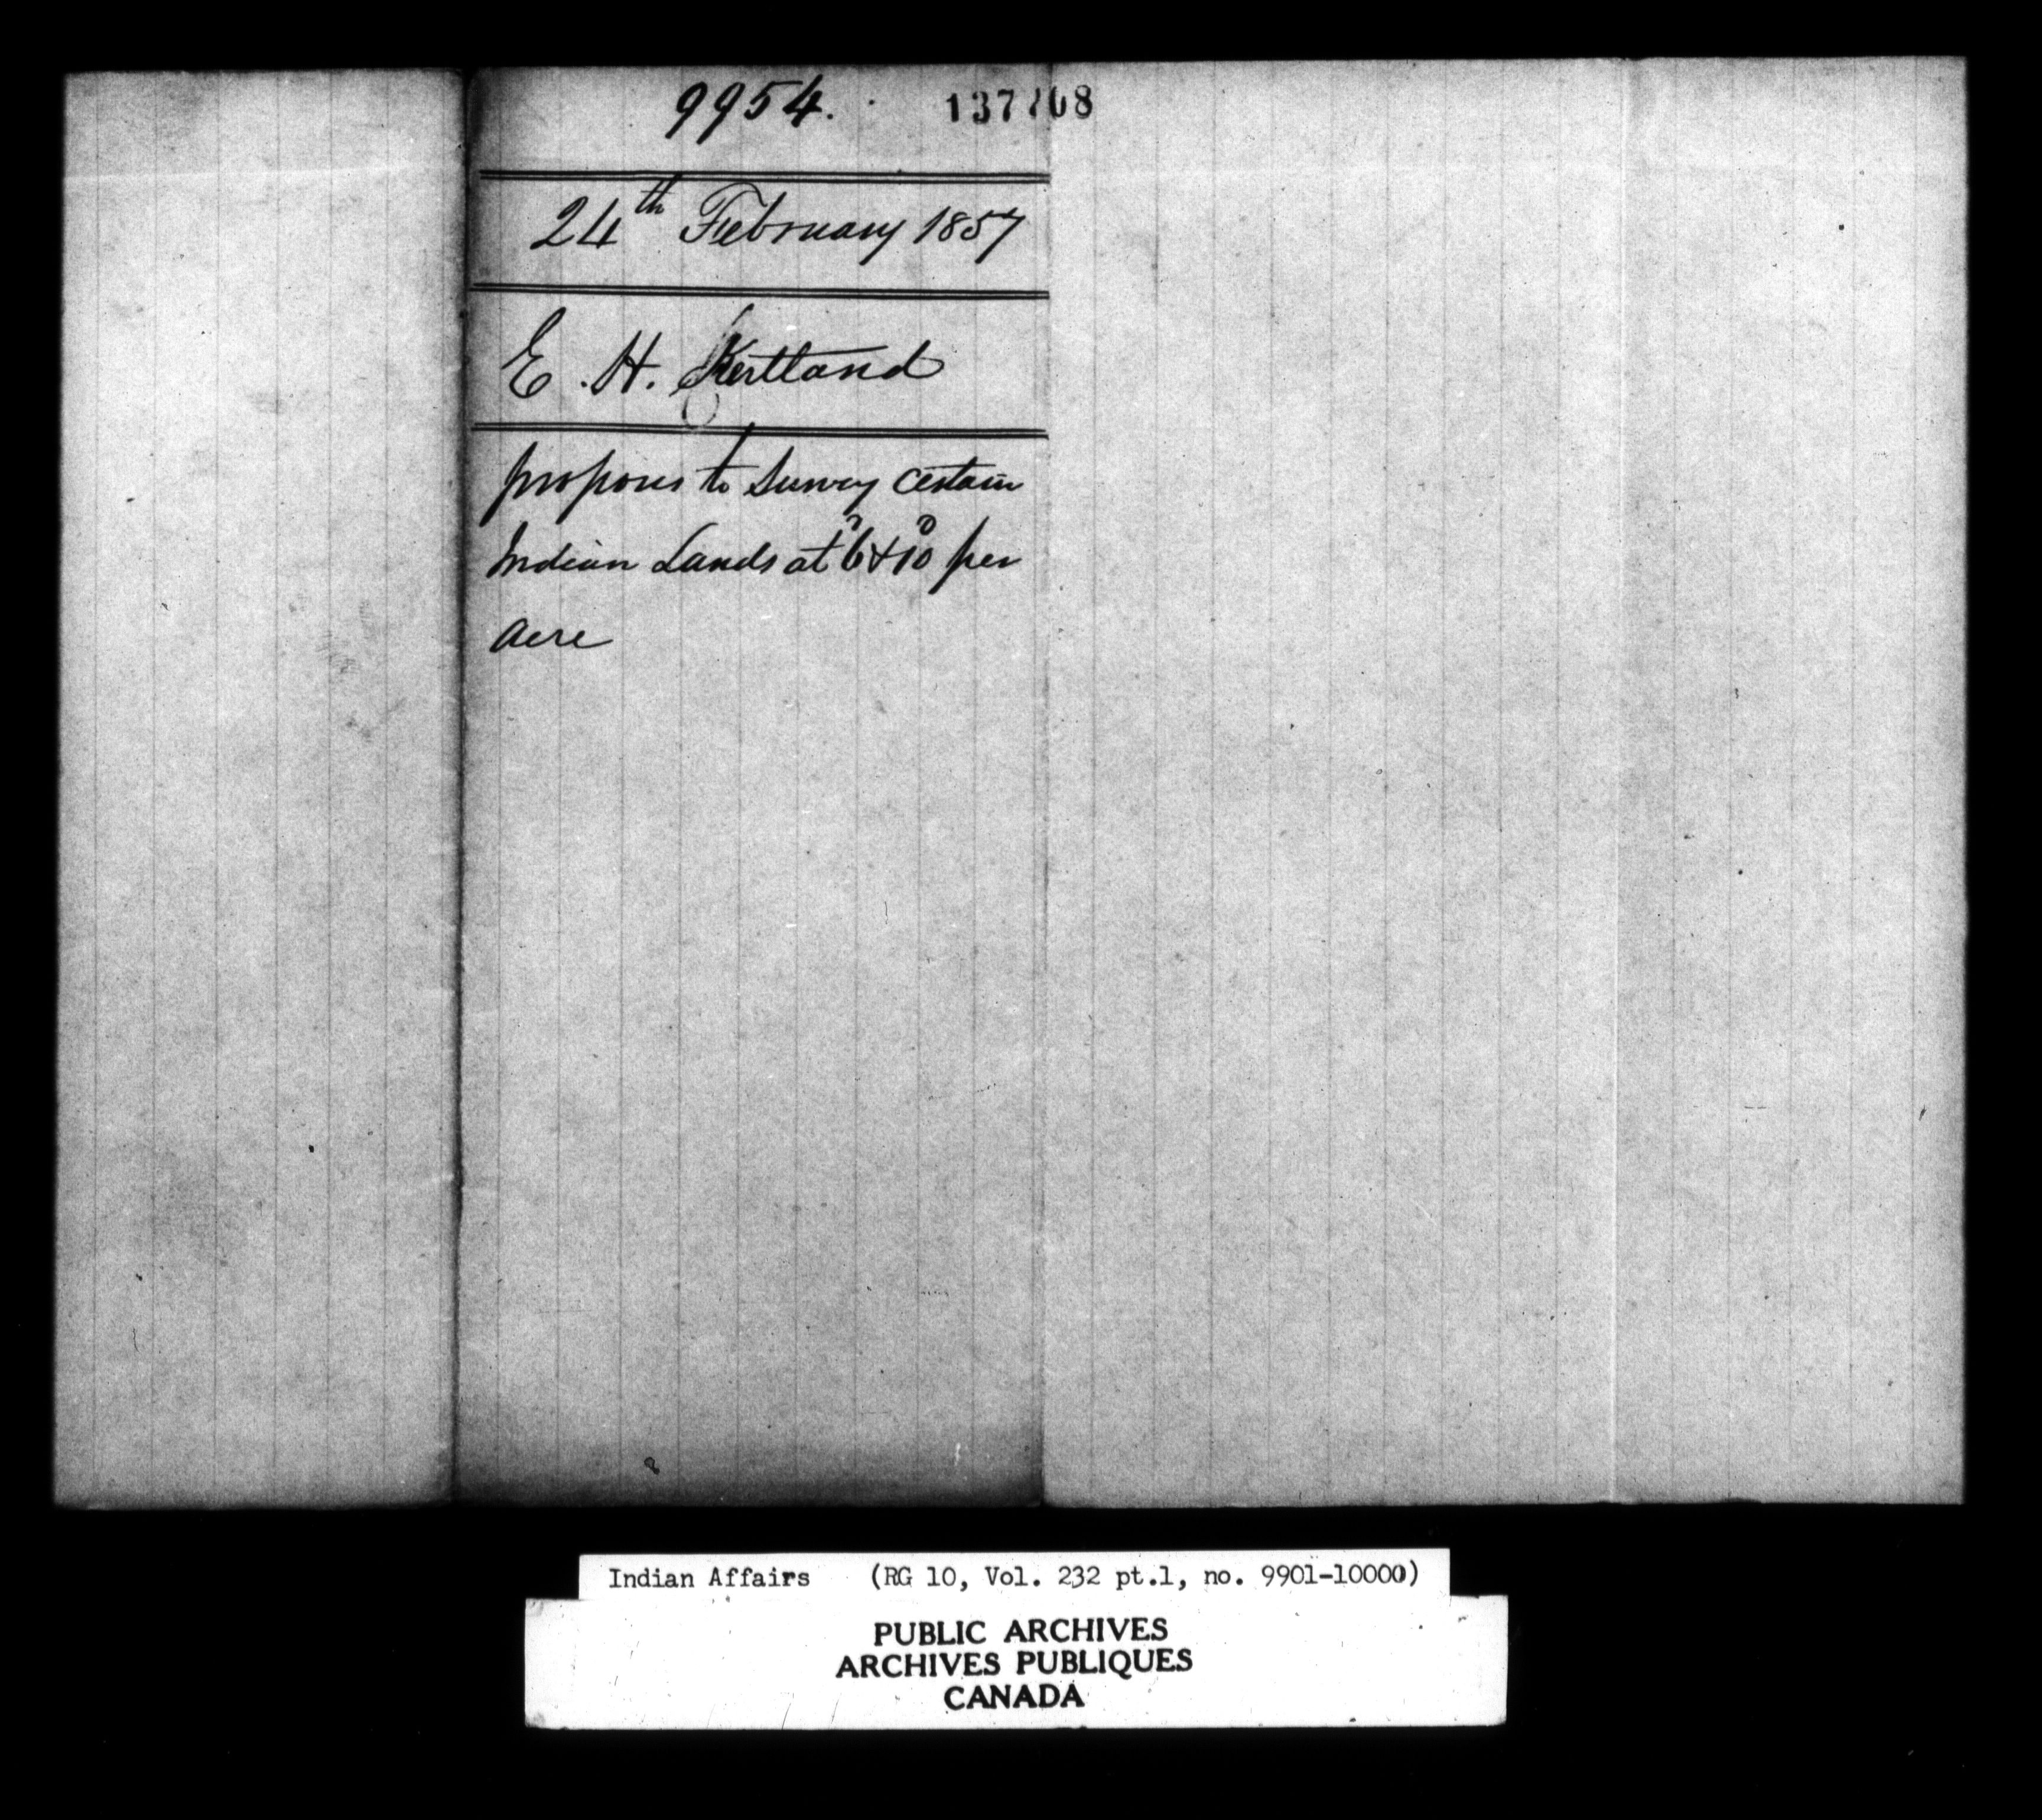 9954.
24th February 1857
E. H. Kertland
proposes to Survey certain
Indian Lands at 6d & 10d per
acre
Indian Affairs (RG 10, Vol. 232 pt.1, no. 9901-10000)
PUBLIC ARCHIVES
ARCHIVES PUBLIQUES
CANADA